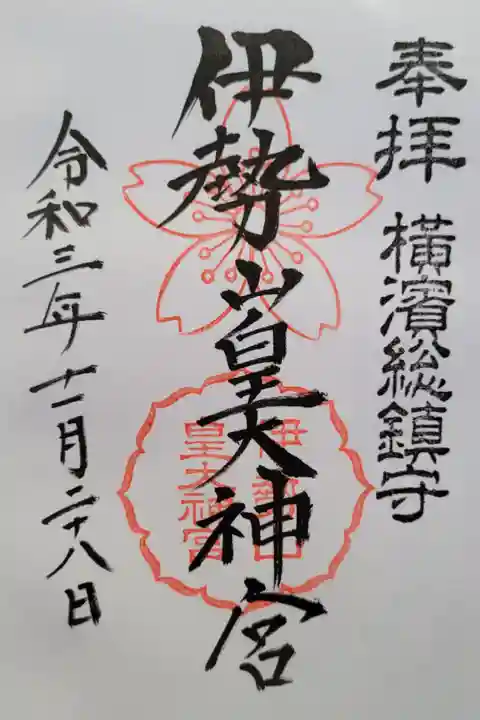 奉拝
横濱総鎮守
伊勢山皇大神宮
伊勢山
皇大神宮
令和三年十一月二十八日